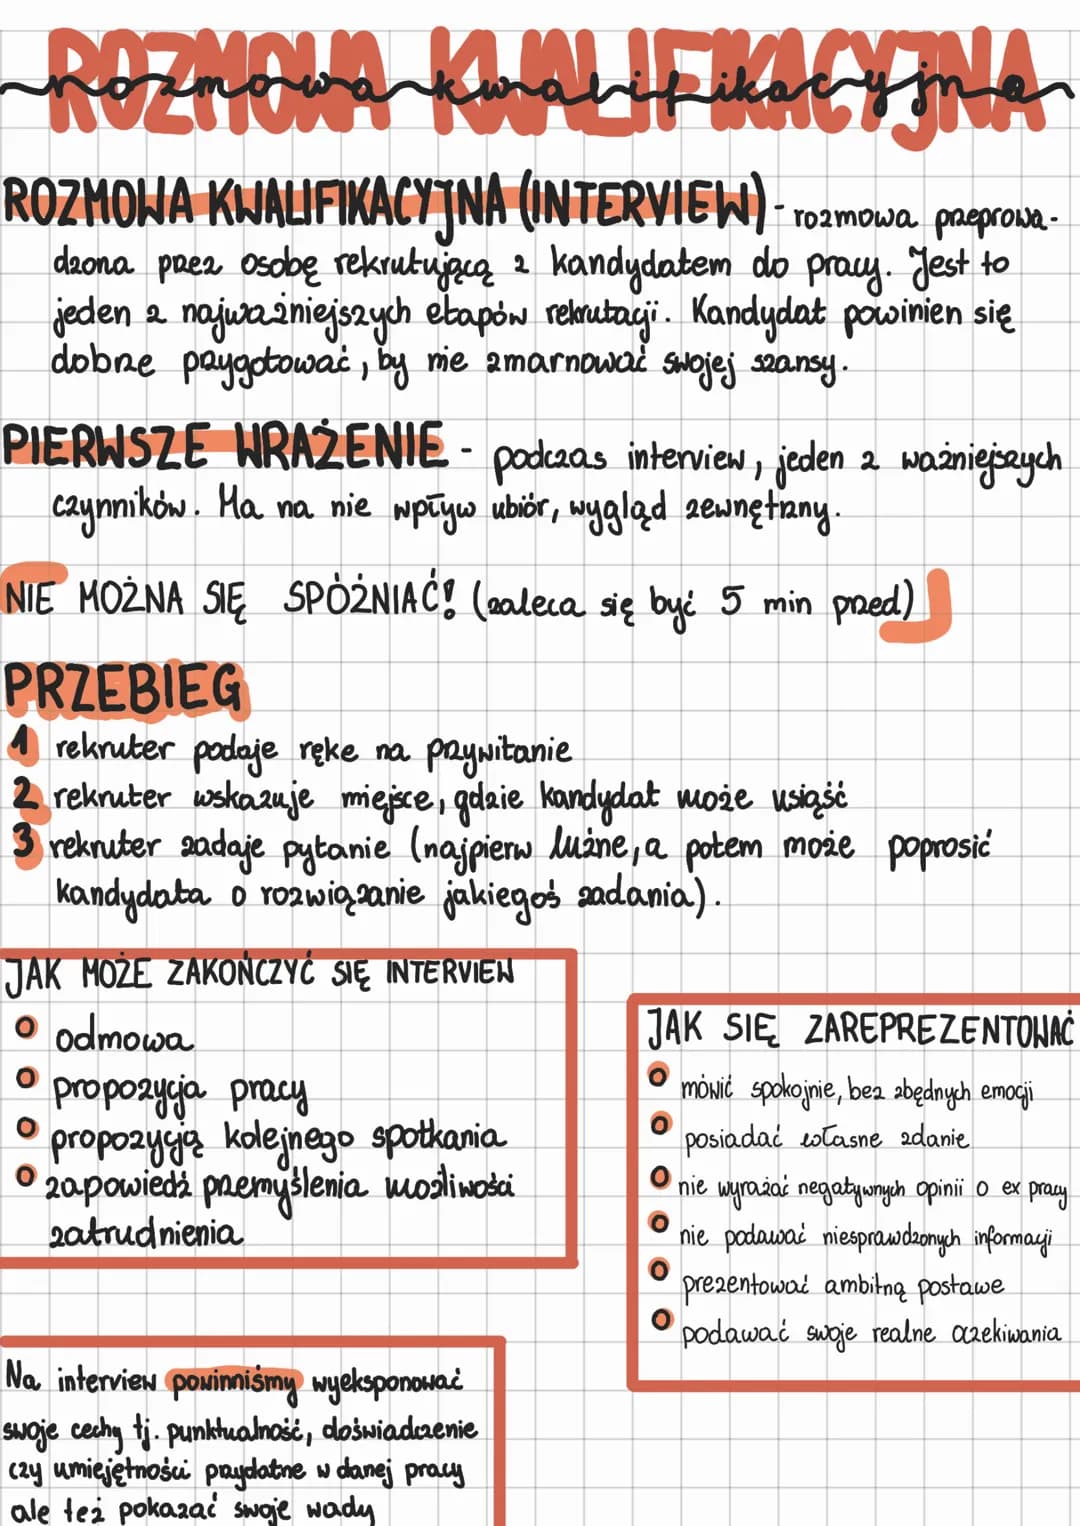 ROZMOWA KWALIFIKACYJNA
rozmowa kwalifikacyjna
ROZMOWA KWALIFIKACYJNA (INTERVIEW) - rozmowa przeprowa-
dzona przez osobę rekrutującą z kandydatem do pracy. Jest to
jeden z najważniejszych etapów rekrutacji. Kandydat powinien się
dobrze przygotować, by nie zmarnować swojej szansy.
PIERWSZE WRAŻENIE - podczas interview, jeden z ważniejszych
czynników. Ma na nie wpływ ubiór, wygląd zewnętrzny.
NIE MOŻNA SIĘ SPÓŹNIAĆ! (zaleca się być 5 min przed)
PRZEBIEG
1 rekruter podaje ręke na przywitanie
2 rekruter wskazuje miejsce, gdzie kandydat może usiąść
3 rekruter zadaje pytanie (najpierw luźne, a potem może poprosić
kandydata o rozwiązanie jakiegoś zadania).
JAK MOŻE ZAKOŃCZYĆ SIĘ INTERVIEW
odmowa
propozycja pracy
propozycją kolejnego spotkania
zapowiedź przemyślenia możliwości
zatrudnienia
JAK SIĘ ZAREPREZENTOWAĆ
mówić spokojnie, bez zbędnych emocji
posiadać własne zdanie
nie wyrażać negatywnych opinii o ex pracy
nie podawać niesprawdzonych informacji
prezentować ambitną postawe
podawać swoje realne oczekiwania
Na interview powinniśmy wyeksponować
swoje cechy tj. punktualność, doświadczenie
czy umiejętności przydatne w danej pracy
ale też pokazać swoje wady